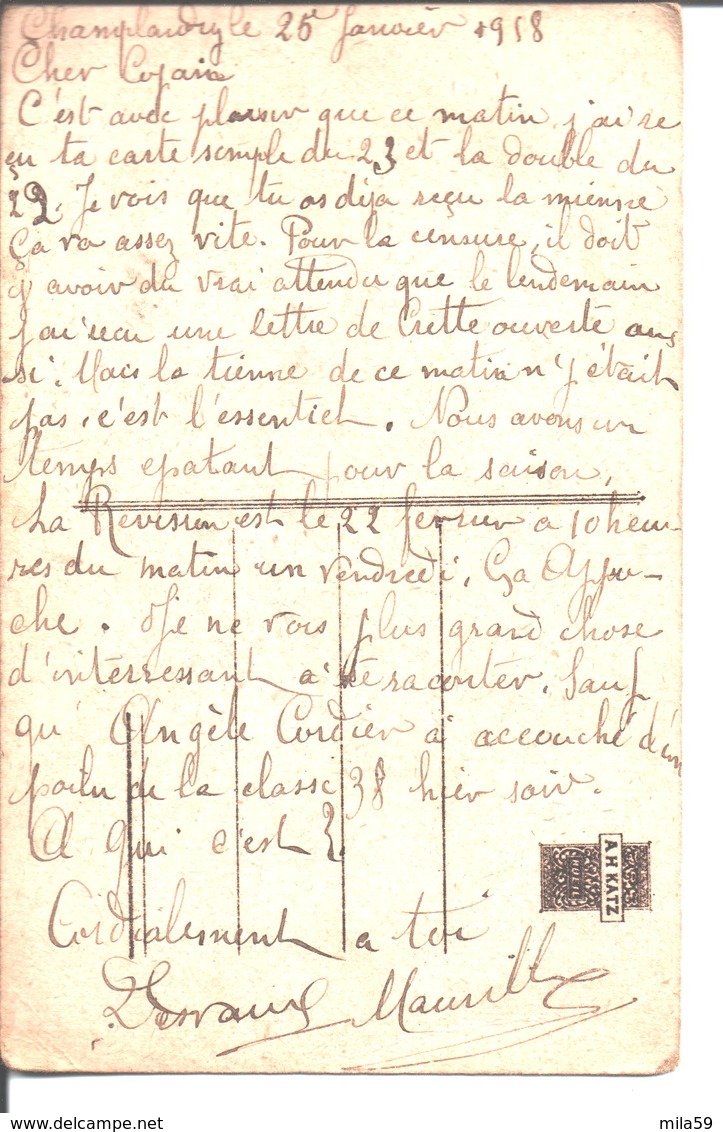 le 25 Janvier 1918
Cher Copain
C'est avec plaisir que ce matin j'ai re
çu ta carte semple du 23 et la double du
22. Je vois que tu as dija reçu la mienne
Ça va assez vite. Pour la censure, il doit
y avoir du vrai attendu que le lendemain
j'ai recu une lettre de Crette ouverte aus
si. Mais la tienne de ce matin n'y était
pas, c'est l'essentiel. Nous avons un
temps epatant pour la saison,
La Revission est le 22 fevrier a 10 heu-
res du matin un vendredi. Ça Appu-
che. Je ne vois plus grand chose
d'interressant a te raconter. Sauf
qu' Angèle Cordier à accouché d'un
poilu de la classe 38 hier soir.
A qui c'est ?
Cordialement a toi
Maurille
A H KATZ
delcampe.net
mila59